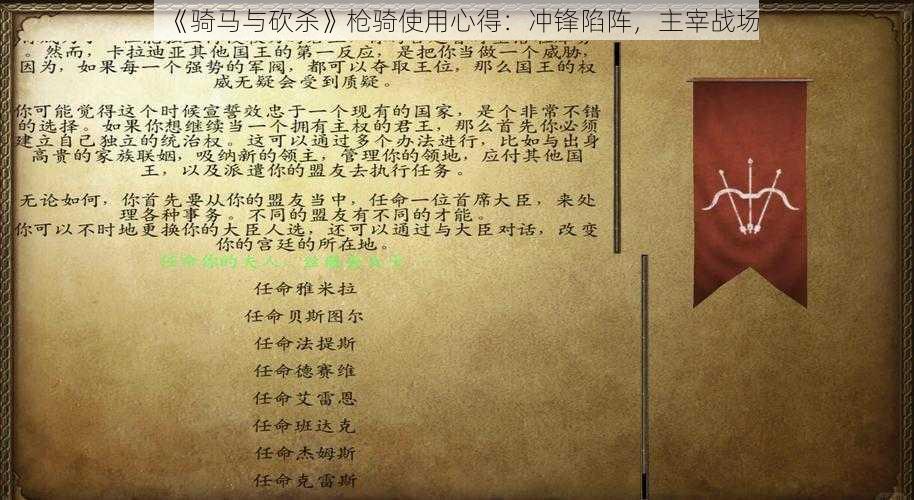 《骑马与砍杀》枪骑使用心得：冲锋陷阵，主宰战场
。然而，卡拉迪亚其他国王的第一反应，是把你当做一个威胁，
因为，如果每一个强势的军阀，都可以夺取王位，那么国王的权
威无疑会受到质疑。
你可能觉得这个时候宣誓效忠于一个现有的国家，是个非常不错
的选择。如果你想继续当一个拥有主权的君王，那么首先你必须
建立自己独立的统治权。这可以通过多个办法进行，比如与出身
高贵的家族联姻，吸纳新的领主，管理你的领地，应付其他国
王，以及派遣你的盟友去执行任务。
无论如何，你首先要从你的盟友当中，任命一位首席大臣，来处
理各种事务。不同的盟友有不同的才能。
你可以不时地更换你的大臣人选，还可以通过与大臣对话，改变
你的宫廷的所在地。
任命你的夫人，
任命雅米拉
任命贝斯图尔
任命法提斯
任命德赛维
任命艾雷恩
任命班达克
任命杰姆斯
任命克雷斯